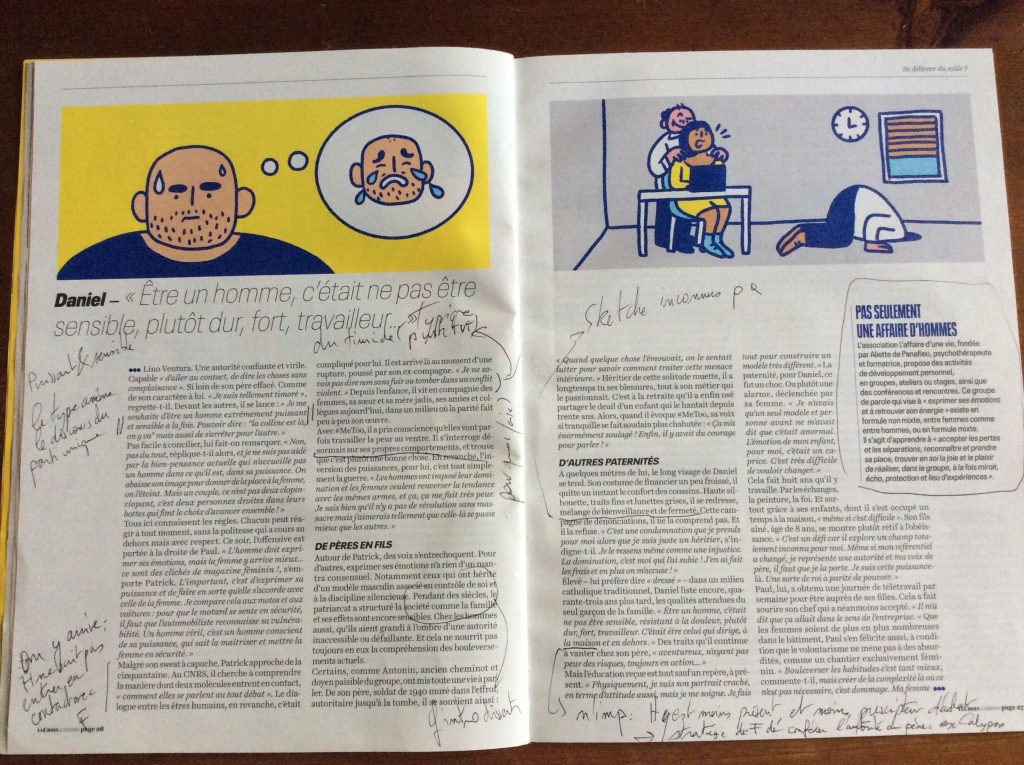 Se délivrer du mâle ?
Daniel – « Être un homme, c'était ne pas être
sensible, plutôt dur, fort, travailleur...»
Puissant & sensible
le type anone
le discours du
point unique
On y arrive:
entrer en
contact avec
F
••• Lino Ventura. Une autorité confiante et virile.
Capable « d'aller au contact, de dire les choses sans
complaisance ». Si loin de son père effacé. Comme
de son caractère à lui. « Je suis tellement timoré »,
regrette-t-il. Devant les autres, il se lance : « Je me
souhaite d'être un homme extrêmement puissant
et sensible à la fois. Pouvoir dire : "la colline est là,
on y va" mais aussi de s'arrêter pour l'autre. »
Pas facile à concilier, lui fait-on remarquer. « Non,
pas du tout, réplique-t-il alors, et je ne suis pas aidé
par la bien-pensance actuelle qui n'accueille pas
un homme dans ce qu'il est, dans sa puissance. On
abaisse son image pour donner de la place à la femme,
on l'éteint. Mais un couple, ce n'est pas deux clopin-
clopant, c'est deux personnes droites dans leurs
bottes qui font le choix d'avancer ensemble ! »
Tous ici connaissent les règles. Chacun peut réa-
gir à tout moment, sans la politesse qui a cours au
dehors mais avec respect. Ce soir, l'offensive est
portée à la droite de Paul. « L'homme doit expri-
mer ses émotions, mais la femme y arrive mieux...
ce sont des clichés de magazine féminin !, s'em-
porte Patrick. L'important, c'est d'exprimer sa
puissance et de faire en sorte qu'elle s'accorde avec
celle de la femme. Je compare cela aux motos et aux
voitures : pour que le motard se sente en sécurité,
il faut que l'automobiliste reconnaisse sa vulnéra-
bilité. Un homme viril, c'est un homme conscient
de sa puissance, qui sait la maîtriser et mettre la
femme en sécurité. »
Malgré son sweat à capuche, Patrick approche de la
cinquantaine. Au CNRS, il cherche à comprendre
la manière dont deux molécules entrent en contact,
« comment elles se parlent au tout début ». Le dia-
logue entre les êtres humains, en revanche, c'était
compliqué pour lui. Il est arrivé là au moment d'une
rupture, poussé par son ex-compagne. « Je ne sa-
vais pas dire non sans fuir ou tomber dans un conflit
violent. » Depuis l'enfance, il vit en compagnie des
femmes, sa sœur et sa mère jadis, ses amies et col-
lègues aujourd'hui, dans un milieu où la parité fait
peu à peu son œuvre.
Avec #MeToo, il a pris conscience qu'elles vont par-
fois travailler la peur au ventre. Il s'interroge dé-
sormais sur ses propres comportements, et trouve
que c'est plutôt une bonne chose. En revanche, l'in-
version des puissances, pour lui, c'est tout simple-
ment la guerre. « Les hommes ont imposé leur domi-
nation et les femmes veulent renverser la tendance
avec les mêmes armes, et ça, ça me fait très peur.
Je sais bien qu'il n'y a pas de révolution sans mas-
sacre mais j'aimerais tellement que celle-là se passe
mieux que les autres. »
DE PÈRES EN FILS
Autour de Patrick, des voix s'entrechoquent. Pour
d'autres, exprimer ses émotions n'a rien d'un man-
tra consensuel. Notamment ceux qui ont hérité
d'un modèle masculin associé au contrôle de soi et
à la discipline silencieuse. Pendant des siècles, le
patriarcat a structuré la société comme la famille
et ses effets sont encore sensibles. Chez les hommes
aussi, qu'ils aient grandi à l'ombre d'une autorité
inaccessible ou défaillante. Et cela ne nourrit pas
toujours en eux la compréhension des bouleverse-
ments actuels.
Certains, comme Antonin, ancien cheminot et
doyen paisible du groupe, ont mis toute une vie à par-
ler. De son père, soldat de 1940 muré dans l'effroi,
autoritaire jusqu'à la tombe, il se souvient ainsi :
LA CROIX L'HEBDO page 26
Sketche inconnus
« Quand quelque chose l'émouvait, on le sentait
lutter pour savoir comment traiter cette menace
intérieure. » Héritier de cette solitude muette, il a
longtemps tu ses blessures, tout à son métier qui
le passionnait. C'est à la retraite qu'il a enfin osé
partager le deuil d'un enfant qui le hantait depuis
trente ans. Alors, quand il évoque #MeToo, sa voix
si tranquille se fait soudain plus chahutée : « Ça m'a
énormément soulagé ! Enfin, il y avait du courage
pour parler ! »
D'AUTRES PATERNITÉS
À quelques mètres de lui, le long visage de Daniel
se tend. Son costume de financier un peu froissé, il
quitte un instant le confort des coussins. Haute sil-
houette, traits fins et lunettes grises, il se redresse,
mélange de bienveillance et de fermeté. Cette cam-
pagne de dénonciations, il ne la comprend pas. Et
il la refuse. « C'est une condamnation que je prends
pour moi alors que je suis juste un héritier, s'in-
digne-t-il. Je le ressens même comme une injustice.
La domination, c'est moi qui l'ai subie ! J'en ai fait
les frais et en plus on m'accuse ! »
Élevé – lui préfère dire « dressé » – dans un milieu
catholique traditionnel, Daniel liste encore, qua-
rante-trois ans plus tard, les qualités attendues du
seul garçon de la famille. « Être un homme, c'était
ne pas être sensible, résistant à la douleur, plutôt
dur, fort, travailleur. C'était être celui qui dirige, à
la maison et en dehors. » Des traits qu'il continue
à vanter chez son père, « aventureux, n'ayant pas
peur des risques, toujours en action... »
Mais l'éducation reçue est tout sauf un repère, à pré-
sent. « Physiquement, je suis son portrait craché,
en terme d'attitude aussi, mais je me soigne. Je fais
tout pour construire un
modèle très différent. » La
paternité, pour Daniel, ce
fut un choc. Ou plutôt une
alarme, déclenchée par
sa femme. « Je n'avais
qu'un seul modèle et per-
sonne avant ne m'avait
dit que c'était anormal.
L'émotion de mon enfant,
pour moi, c'était un ca-
price. C'est très difficile
de vouloir changer. »
Cela fait huit ans qu'il y
travaille. Par les échanges,
la peinture, la foi. Et sur-
tout grâce à ses enfants, dont il s'est occupé un
temps à la maison, « même si c'est difficile ». Son fils
aîné, âgé de 8 ans, se montre plutôt rétif à l'obéis-
sance. « C'est un défi car il explore un champ tota-
lement inconnu pour moi. Même si mon référentiel
a changé, je représente une autorité et ma voix de
père, il faut que je la porte. Je suis cette puissance-
là. Une sorte de roi à parité de pouvoir. »
Paul, lui, a obtenu une journée de télétravail par
semaine pour être auprès de ses filles. Cela a fait
sourire son chef qui a néanmoins accepté. « Il m'a
dit que ça allait dans le sens de l'entreprise. » Que
les femmes soient de plus en plus nombreuses
dans le bâtiment, Paul s'en félicite aussi, à condi-
tion que le volontarisme ne mène pas à des absur-
dités, comme un chantier exclusivement fémi-
nin. « Bouleverser les habitudes c'est tant mieux,
commente-t-il, mais créer de la complexité là où ce
n'est pas nécessaire, c'est dommage. Ma femme •••
PAS SEULEMENT
UNE AFFAIRE D'HOMMES
L'association L'affaire d'une vie, fondée
par Aliette de Panafieu, psychothérapeute
et formatrice, propose des activités
de développement personnel,
en groupes, ateliers ou stages, ainsi que
des conférences et rencontres. Ce groupe
de parole qui vise à « exprimer ses émotions
et à retrouver son énergie » existe en
formule non mixte, entre femmes comme
entre hommes, ou en formule mixte.
Il s'agit d'apprendre à « accepter les pertes
et les séparations, reconnaître et prendre
sa place, trouver en soi la joie et le plaisir
de réaliser, dans le groupe, à la fois miroir,
écho, protection et lieu d'expériences ».
n'imp: H est moins présent et moins prescripteur
stratégie de F de conférer l'autorité au père
LA CROIX L'HEBDO page 27